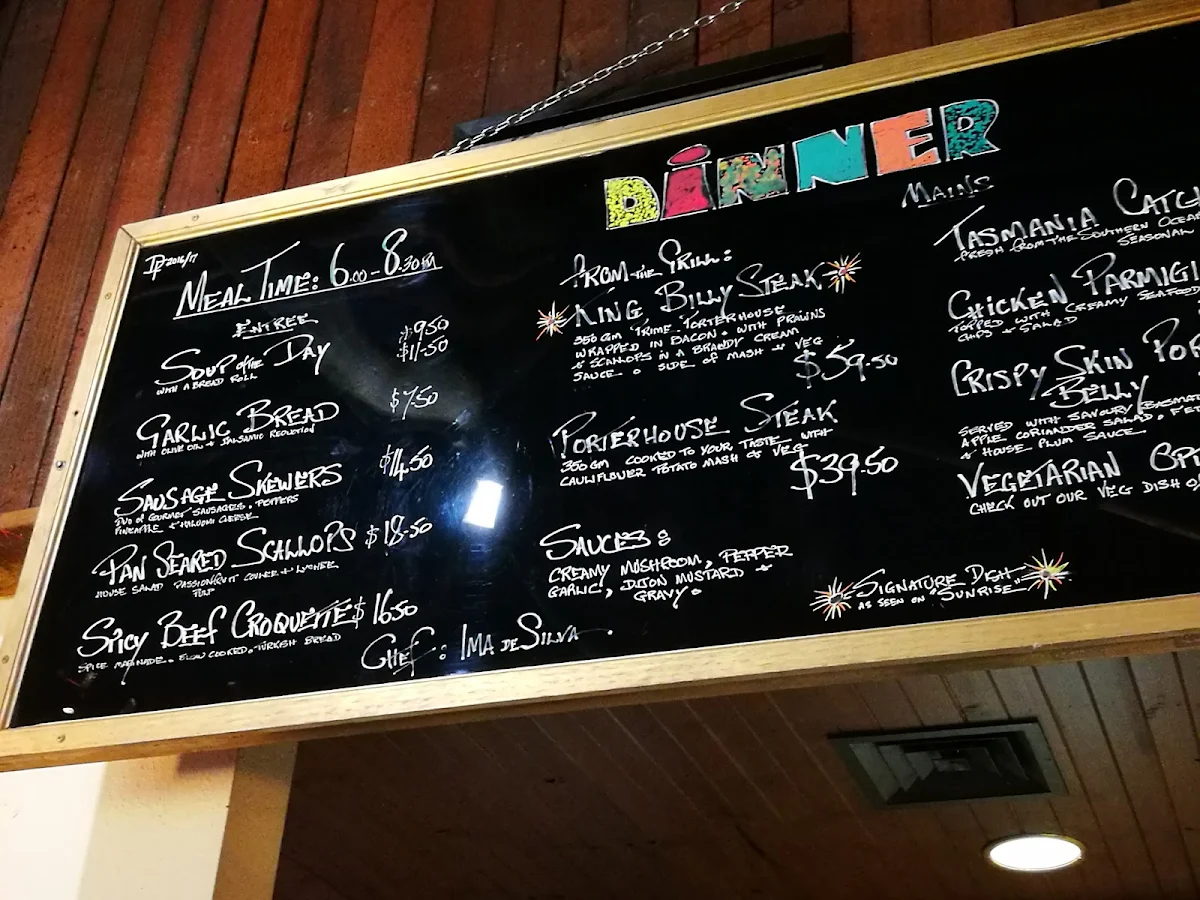 DINNER
2016/17
MEAL TIME: 6.00 - 8.30PM
ENTREE
SOUP of the DAY $9.50
WITH A BREAD ROLL $11.50
GARLIC BREAD $7.50
WITH OLIVE OIL & BALSAMIC REDUCTION
SAUSAGE SKEWERS $14.50
DUO OF GOURMET SAUSAGES, PEPPERS
PINEAPPLE & HALOUMI CHEESE
PAN SEARED SCALLOPS $18.50
HOUSE SALAD PASSIONFRUIT & LYCHEE
SPICY BEEF CROQUETTE $16.50
SPICE MARINADE. SLOW COOKED. TURKISH BREAD
CHEF: IMA DE SILVA.
FROM THE GRILL:
KING BILLY STEAK
350GM PRIME PORTERHOUSE
WRAPPED IN BACON & WITH PRAWNS
& SCALLOPS IN A BRANDY CREAM
SAUCE SIDE OF MASH & VEG
$59.50
PORTERHOUSE STEAK
350GM COOKED TO YOUR TASTE WITH
CAULIFLOWER POTATO MASH & VEG
$39.50
SAUCES:
CREAMY MUSHROOM, PEPPER
GARLIC, DIJON MUSTARD &
GRAVY.
MAINS
TASMANIA CATC
FRESH FROM THE SOUTHERN OCEA
SEASONAL
CHICKEN PARMIGI
TOPPED WITH CREAMY SEAFOOD
CHIPS & SALAD
CRISPY SKIN POR
BELLY
SERVED WITH SAVOURY BASMAT
APPLE CORIANDER SALAD,
& HOUSE PLUM SAUCE
VEGETARIAN
CHECK OUT OUR VEG DISH
SIGNATURE DISH
AS SEEN ON "SUNRISE"